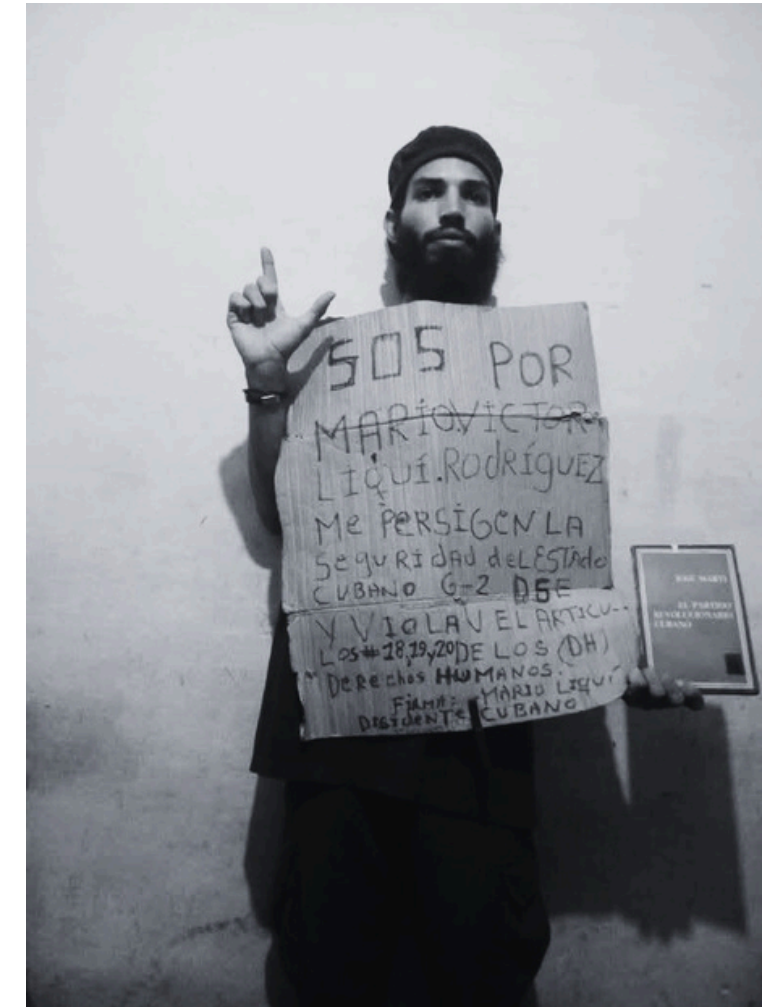 SOS POR
MARIO.VICTOR
LIQUÍ.RODRÍGUEZ
Me PERSIGEN LA
SeguRIDAD delESTAdo
CUBANO G-2 DSE
Y VIOLAN EL ARTICU--
LOS #18,19,y20 DE LOS (DH)
" DeRechos HUMANOS.
FiRMA: MARIO LIQUÍ
DISIdENTE CUBANO
JOSÉ MARTÍ
EL PARTIDO
REVOLUCIONARIO
CUBANO